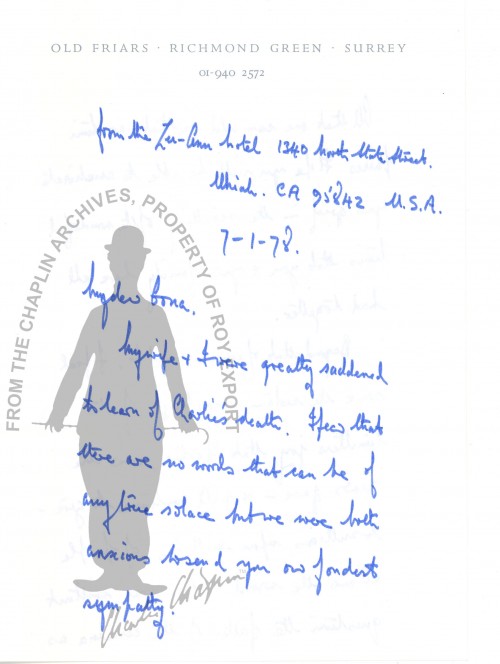 OLD FRIARS · RICHMOND GREEN · SURREY
01-940 2572
from the Lu-Ann hotel 1340 North State Street.
Ukiah. CA 95842 U.S.A.
7-1-78.
My dear Oona,
My wife & I were greatly saddened
to learn of Charlie's death. I fear that
there are no words that can be of
any true solace but we were both
anxious to send you our fondest
sympathy.
FROM THE CHAPLIN ARCHIVES, PROPERTY OF ROY EXPORT
Charlie Chaplin